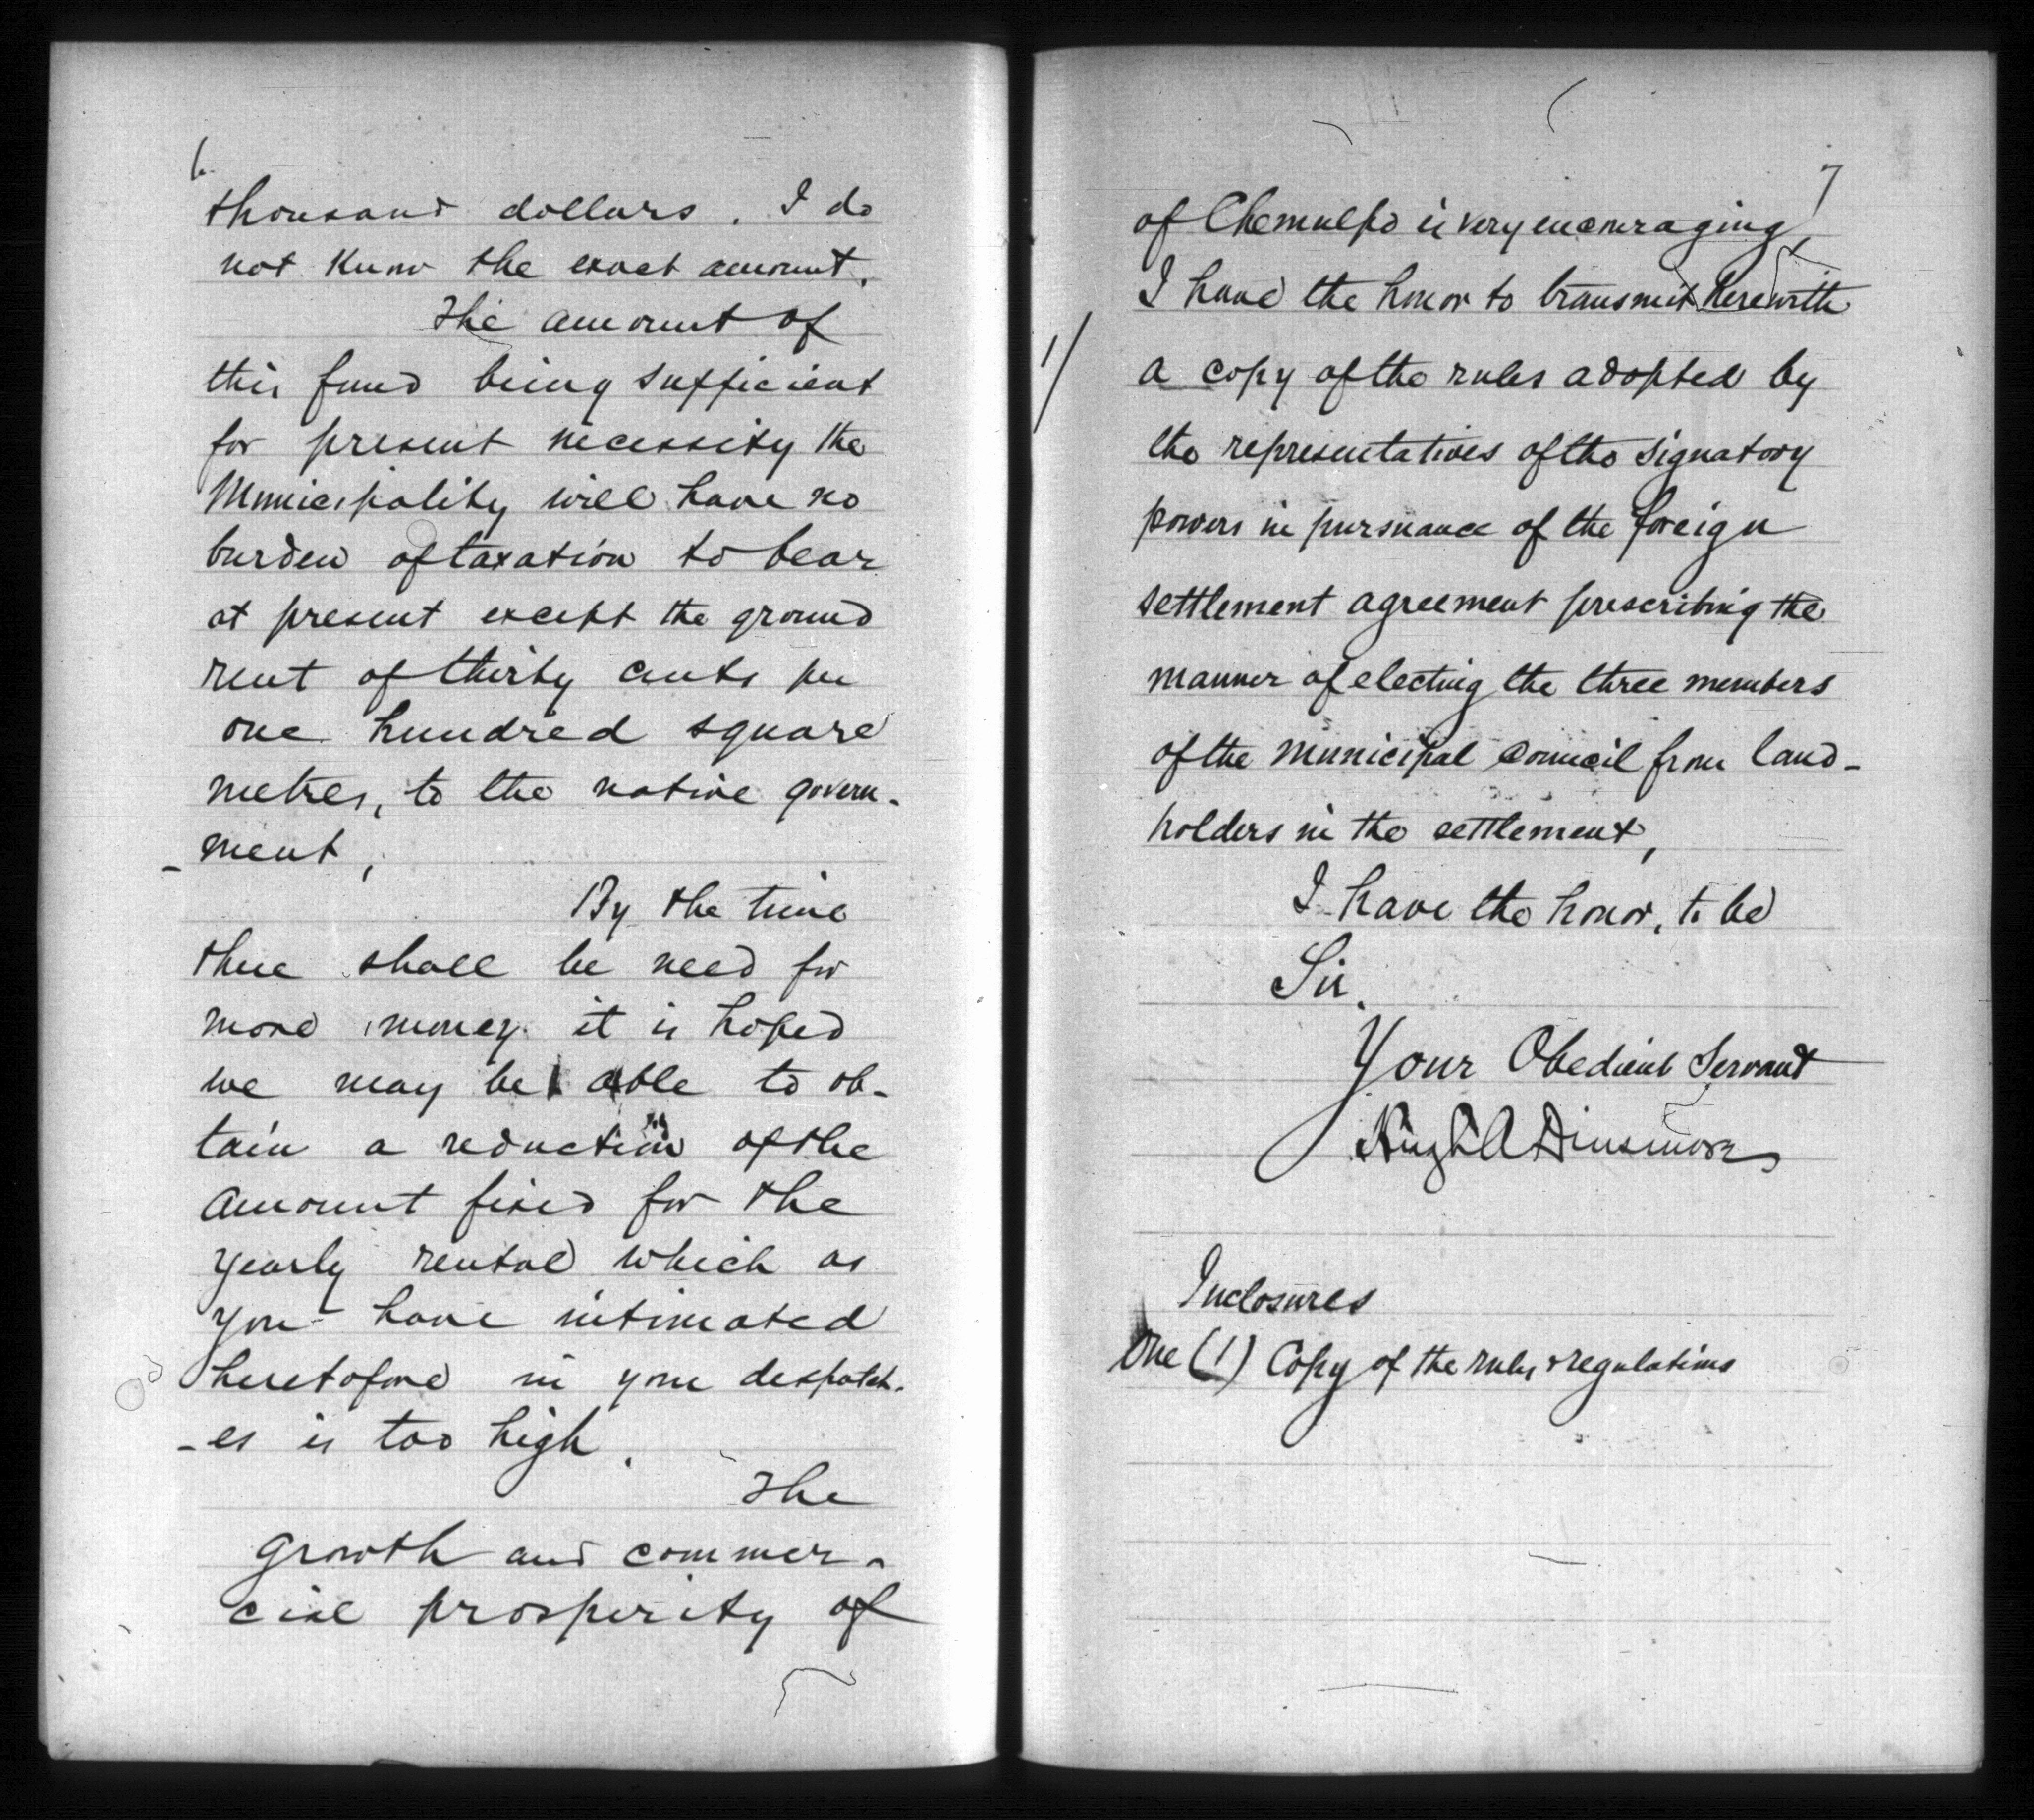 6.
thousand dollars. I do
not know the exact amount.
The amount of
this fund being sufficient
for present necessity the
Municipality will have no
burden of taxation to bear
at present except the ground
rent of thirty cents per
one hundred square
metres, to the native govern-
-ment,
By the time
there shall be need for
more money it is hoped
we may be able to ob-
tain a reduction of the
amount fixed for the
yearly rental which as
you have intimated
heretofore in your despatch-
-es is too high.
The
growth and commer-
cial prosperity of
7
of Chemulpo is very encouraging,
I have the honor to transmit herewith
1/
a copy of the rules adopted by
the representatives of the signatory
powers in pursuance of the foreign
settlement agreement prescribing the
manner of electing the three members
of the municipal council from land-
holders in the settlement,
I have the honor, to be
Sir,
Your Obedient Servant
Hugh A Dinsmore
Inclosures
One (1) Copy of the rules & regulations